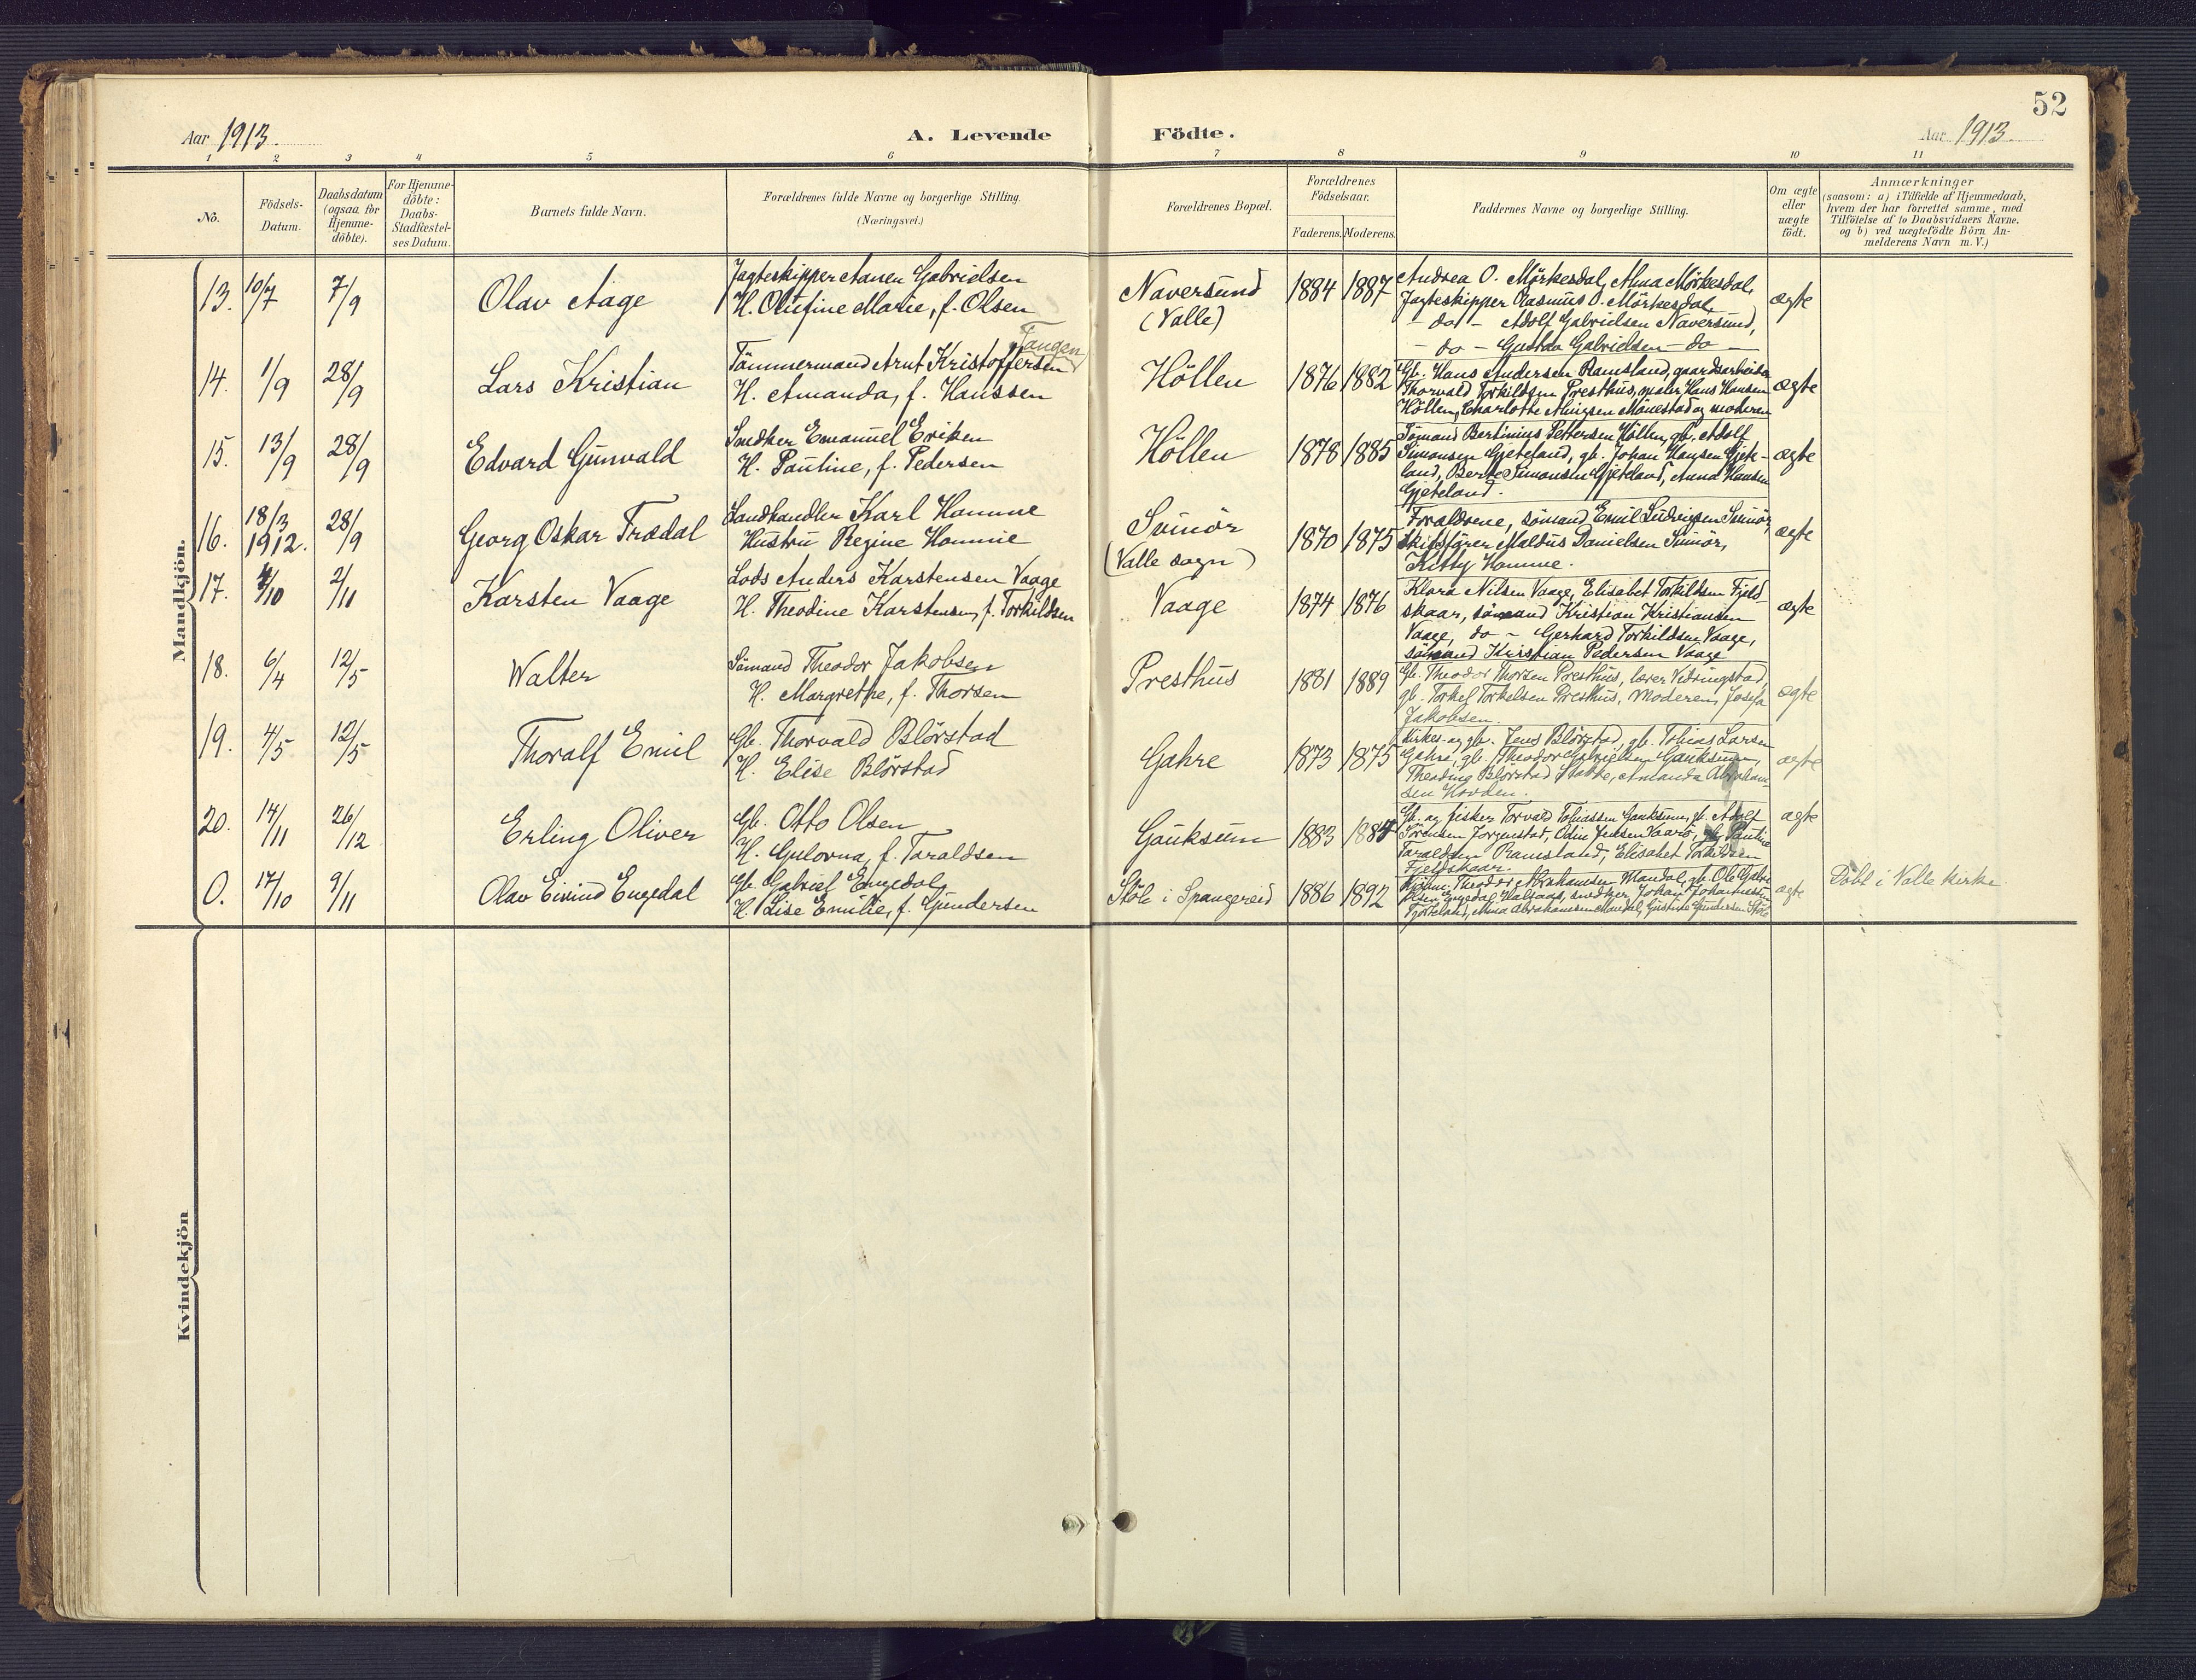 52
Aar 1913.
A. Levende
Födte.
Aar 1913
1 2 3 4 5 6 7 8 9 10 11
No.
Födsels-
Datum.
Daabsdatum
(ogsaa for
Hjemme-
döbte).
For Hjemme-
döbte:
Daabs-
Stadfæstel-
ses Datum.
Barnets fulde Navn.
Forældrenes fulde Navne og borgerlige Stilling.
(Næringsvei.)
Forældrenes Bopæl.
Forældrenes
Födselsaar.
Faderens. Moderens.
Faddernes Navne og borgerlige Stilling.
Om ægte
eller
uægte
födt.
Anmærkninger
(saasom: a) i Tilfælde af Hjemmedaab,
hvem der har forrettet samme, med
Tilföielse af to Daabsvidners Navne,
og b) ved uægtefödte Börn An-
melderens Navn m.V.)
Mandkjön.
13. 10/7 7/9
Olav Aage
Jagteskipper Aanen Gabrielsen
H. Olufine Marie, f. Olsen
Naversund
(Valle)
1884 1887
Andrea O. Mörkesdal, Alma Mörkesdal,
Jagteskipper Rasmus O. Mörkesdal,
- do - Adolf Gabrielsen Naversund,
- do - Gustav Gabrielsen - do -
ægte
14. 1/9 28/9
Lars Kristian
Tangen
Tömmermand Arnt Kristoffersen
H. Amanda, f. Hanssen
Höllen
1876 1882
Gb. Hans Andersen Ramsland, gaardsarbeider
Thorvald Torkildsen Presthus, maler Hans Hansen
Höllen, Charlotte Månestad og moderen
ægte
15. 13/9 28/9
Edvard Gunvald
Snedker Emanuel Eriksen
H. Pauline, f. Pedersen
Höllen
1878 1885
Sömand Bertinius Pettersen Höllen, gb. Adolf
Simonsen Gjeteland, gb. Johan Hansen Gjete-
land, Berte Simonsen Gjeteland, Anna Hansen
Gjeteland.
ægte
16. 18/3 1912. 28/9
Georg Oskar Trædal
Landhandler Karl Homme
Hustru Regine Homme
Svinör
(Valle sogn)
1870 1875
Forældrene, sömand Emil Ludvigsen Svinör,
skibsförer Maldus Danielsen Svinör,
Kitty Homme.
ægte
17. 4/10 2/11
Karsten Vaage
Lods Anders Karstensen Vaage
H. Theodine Karstensen, f. Torkildsen
Vaage
1874 1876
Klara Nilsen Vaage, Elisabet Torkildsen Fjeld-
skaar, sömand Kristian Kristiansen
Vaage, do - Gerhard Torkildsen Vaage,
sömand Kristian Pedersen Vaage
ægte
18. 6/4 12/5
Walter
Sömand Theodor Jakobsen
H. Margrethe, f. Thorsen
Presthus
1881 1889
Gb. Theodor Thorsen Presthus, lærer Vidringstad,
gb. Torkel Torkelsen Presthus, Moderen, Josefa
Jakobsen.
ægte
19. 4/5 12/5
Thoralf Emil
Gb. Thorvald Blörstad
H. Elise Blörstad
Gahre
1873 1875
Kirkes. og gb. Jens Blörstad, gb. Tobias Larsen
Gahre, gb. Theodor Gabrielsen Gauksum,
Theodine Blörstad Stokke, Amanda Abraham-
sen Hovden.
ægte
20. 14/11 26/12
Erling Oliver
Gb. Otto Olsen
H. Gulovna, f. Taraldsen
Gauksum
1883 1884
Gb. og fisker Torvald Tobiassen Gauksum, gb. Adolf
Sörensen Jörgenstad, Odin Jensen Vaarö, Pauline
Taraldsen Ramsland, Elisabet Torkildsen
Fjeldskaar.
ægte
0. 17/10 9/11
Olav Eivind Engedal
Gb. Gabriel Engedal
H. Lise Emilie, f. Gundersen
Stöle i Spangereid
1886 1892
Theodor Abrahamsen Mandal, gb. Ole Gabri-
elsen Engedal Halsaa, snedker Johan Johannesen
Fjorteland, Anna Abrahamsen Mandal, Gustine Gundersen Stöle
ægte
Döbt i Valle kirke.
Kvindekjön